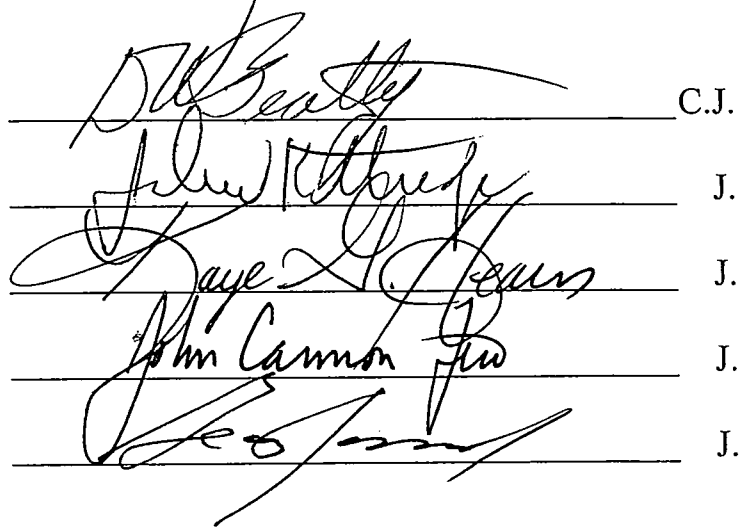 DW Beatty C.J.
John Kittredge J.
Kaye G. Hearn J.
John Cannon Few J.
Geo J.